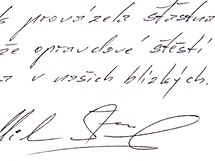 s provázela šťastná
že opravdové štěstí
a v našich blízkých.